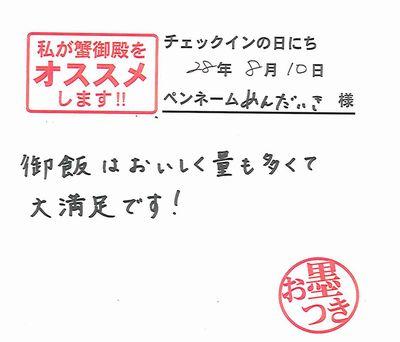 私が蟹御殿を
オススメ
します!!
チェックインの日にち
28年 8月 10日
ペンネームめんだいき 様
御飯はおいしく量も多くて
大満足です!
お墨つき